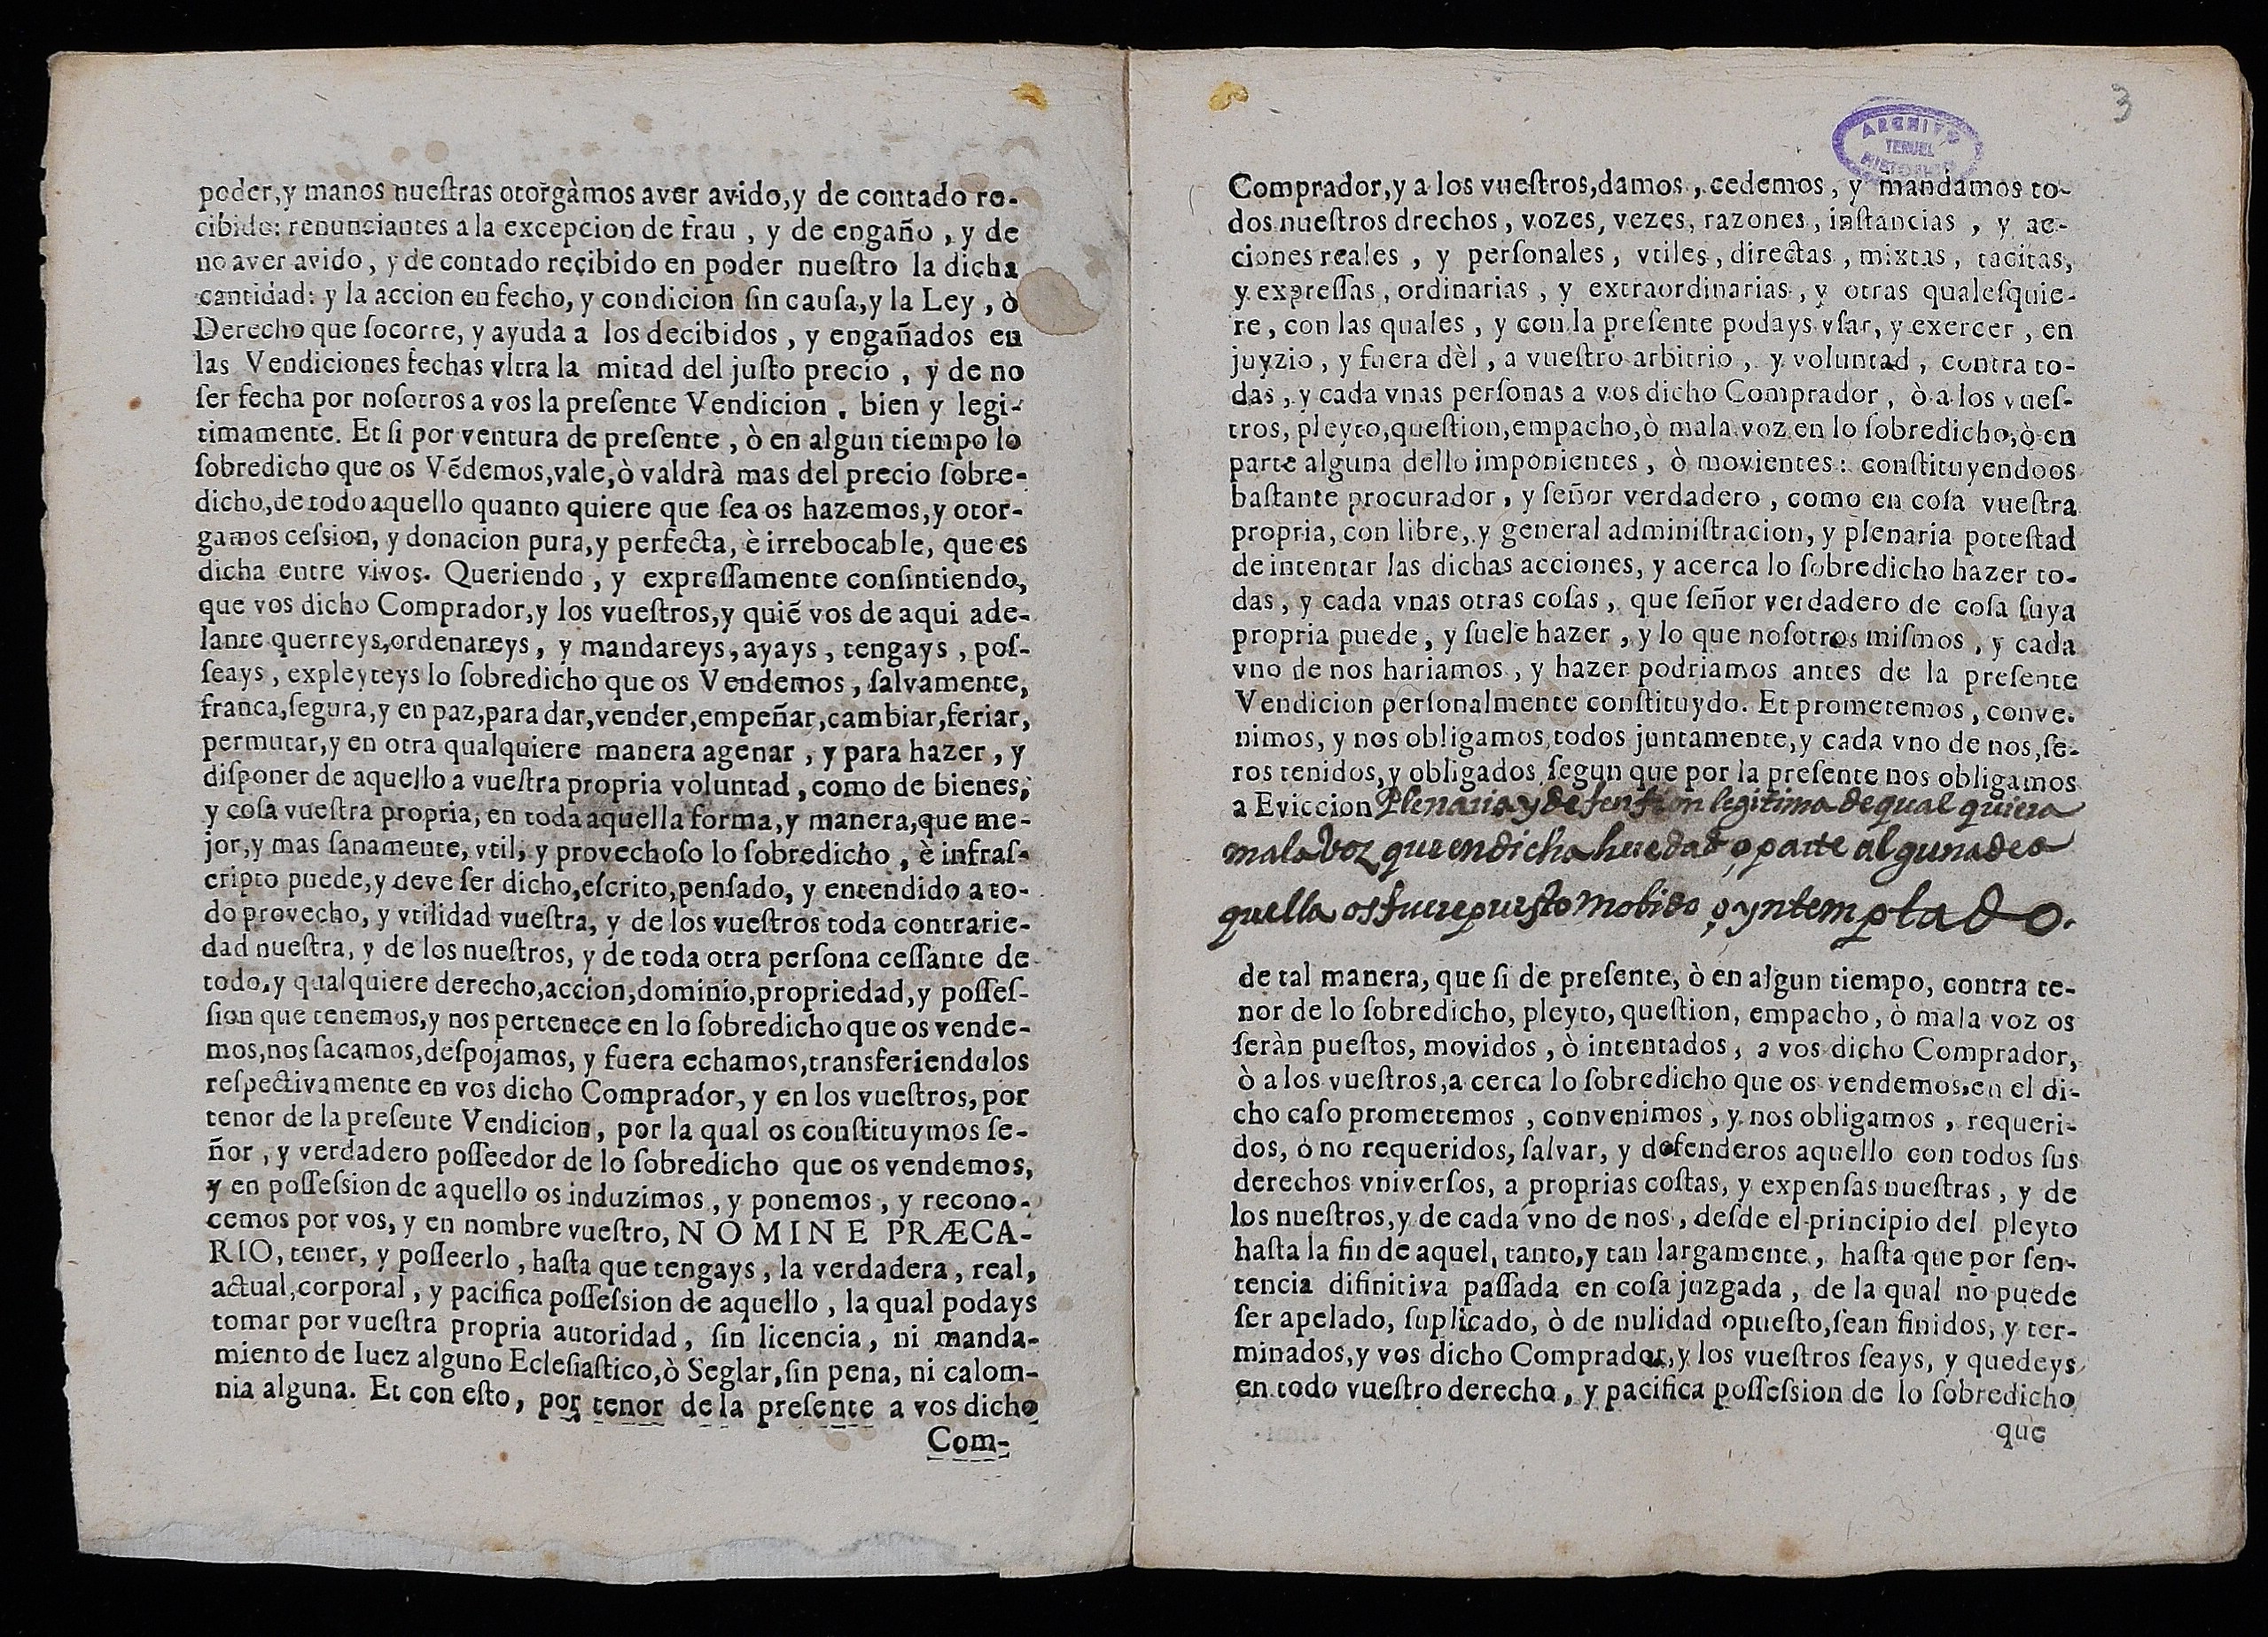 poder,y manos nueſtras otorgàmos aver avido,y de contado re-
cibido: renunciantes a la excepcion de frau , y de engaño , y de
no aver avido , y de contado reçibido en poder nueſtro la dicha
cantidad: y la accion en fecho, y condicion ſin cauſa,y la Ley , ò
Derecho que ſocorre, y ayuda a los decibidos , y engañados en
las Vendiciones fechas vltra la mitad del juſto precio , y de no
ſer fecha por noſotros a vos la preſente Vendicion , bien y legi-
timamente. Et ſi por ventura de preſente , ò en algun tiempo lo
ſobredicho que os Vẽdemos,vale,ò valdrà mas del precio ſobre-
dicho,de todo aquello quanto quiere que ſea os hazemos,y otor-
gamos ceſsion, y donacion pura,y perfecta, è irrebocable, que es
dicha entre vivos. Queriendo , y expreſſamente conſintiendo,
que vos dicho Comprador,y los vueſtros,y quiẽ vos de aqui ade-
lante querreys,ordenareys , y mandareys,ayays , tengays , poſ-
ſeays , expleyteys lo ſobredicho que os Vendemos , ſalvamente,
franca,ſegura,y en paz,para dar,vender,empeñar,cambiar,feriar,
permutar,y en otra qualquiere manera agenar , y para hazer , y
diſponer de aquello a vueſtra propria voluntad , como de bienes,
y coſa vueſtra propria, en toda aquella forma,y manera,que me-
jor,y mas ſanamente, vtil, y provechoſo lo ſobredicho , è infraſ-
cripto puede,y deve ſer dicho,eſcrito,penſado, y entendido a to-
do provecho, y vtilidad vueſtra, y de los vueſtros toda contrarie-
dad nueſtra, y de los nueſtros, y de toda otra perſona ceſſante de
todo,y qualquiere derecho,accion,dominio,propriedad,y poſſeſ-
ſion que tenemos,y nos pertenece en lo ſobredicho que os vende-
mos,nos ſacamos,deſpojamos, y fuera echamos,transferiendolos
reſpectivamente en vos dicho Comprador, y en los vueſtros, por
tenor de la preſente Vendicion, por la qual os conſtituymos ſe-
ñor , y verdadero poſſeedor de lo ſobredicho que os vendemos,
y en poſſeſsion de aquello os induzimos , y ponemos , y recono-
cemos por vos, y en nombre vueſtro, NOMINE PRÆCA-
RIO, tener, y poſſeerlo , haſta que tengays , la verdadera , real,
actual,corporal , y pacifica poſſeſsion de aquello , la qual podays
tomar por vueſtra propria autoridad, ſin licencia, ni manda-
miento de Iuez alguno Ecleſiaſtico,ò Seglar,ſin pena, ni calom-
nia alguna. Et con eſto, por tenor de la preſente a vos dicho
Com-
3
ARCHIVO
TERUEL
Comprador,y a los vueſtros,damos , cedemos , y mandamos to-
dos nueſtros drechos , vozes, vezes, razones , inſtancias , y ac-
ciones reales , y perſonales , vtiles , directas , mixtas , tacitas,
y expreſſas , ordinarias , y extraordinarias , y otras qualeſquie-
re , con las quales , y con la preſente podays vſar, y exercer , en
juyzio , y fuera dèl , a vueſtro arbitrio , y voluntad , contra to-
das , y cada vnas perſonas a vos dicho Comprador , ò a los vueſ-
tros, pleyto,queſtion,empacho,ò mala voz en lo ſobredicho,ò en
parte alguna dello imponientes , ò movientes: conſtituyendoos
baſtante procurador, y ſeñor verdadero , como en coſa vueſtra
propria, con libre, y general adminiſtracion, y plenaria poteſtad
de intentar las dichas acciones, y acerca lo ſobredicho hazer to-
das , y cada vnas otras coſas , que ſeñor verdadero de coſa ſuya
propria puede , y ſuele hazer , y lo que noſotros miſmos , y cada
vno de nos hariamos , y hazer podriamos antes de la preſente
Vendicion perſonalmente conſtituydo. Et prometemos , conve-
nimos, y nos obligamos todos juntamente,y cada vno de nos,ſe-
ros tenidos,y obligados ſegun que por la preſente nos obligamos
a Eviccion Plenaria y defension legitima de qual quiera
mala Voz que en dicha heredad o parte alguna de a
quella os fuere puesto Mobido o yntemptado.
de tal manera, que ſi de preſente, ò en algun tiempo, contra te-
nor de lo ſobredicho, pleyto, queſtion, empacho, ò mala voz os
ſeràn pueſtos, movidos , ò intentados , a vos dicho Comprador,
ò a los vueſtros,a cerca lo ſobredicho que os vendemos,en el di-
cho caſo prometemos , convenimos , y nos obligamos , requeri-
dos, ò no requeridos, ſalvar, y defenderos aquello con todos ſus
derechos vniverſos, a proprias coſtas, y expenſas nueſtras , y de
los nueſtros,y de cada vno de nos , deſde el principio del pleyto
haſta la fin de aquel, tanto,y tan largamente, haſta que por ſen-
tencia difinitiva paſſada en coſa juzgada , de la qual no puede
ſer apelado, ſuplicado, ò de nulidad opueſto,ſean finidos, y ter-
minados,y vos dicho Comprador,y los vueſtros ſeays, y quedeys
en todo vueſtro derecho, y pacifica poſſeſsion de lo ſobredicho
que